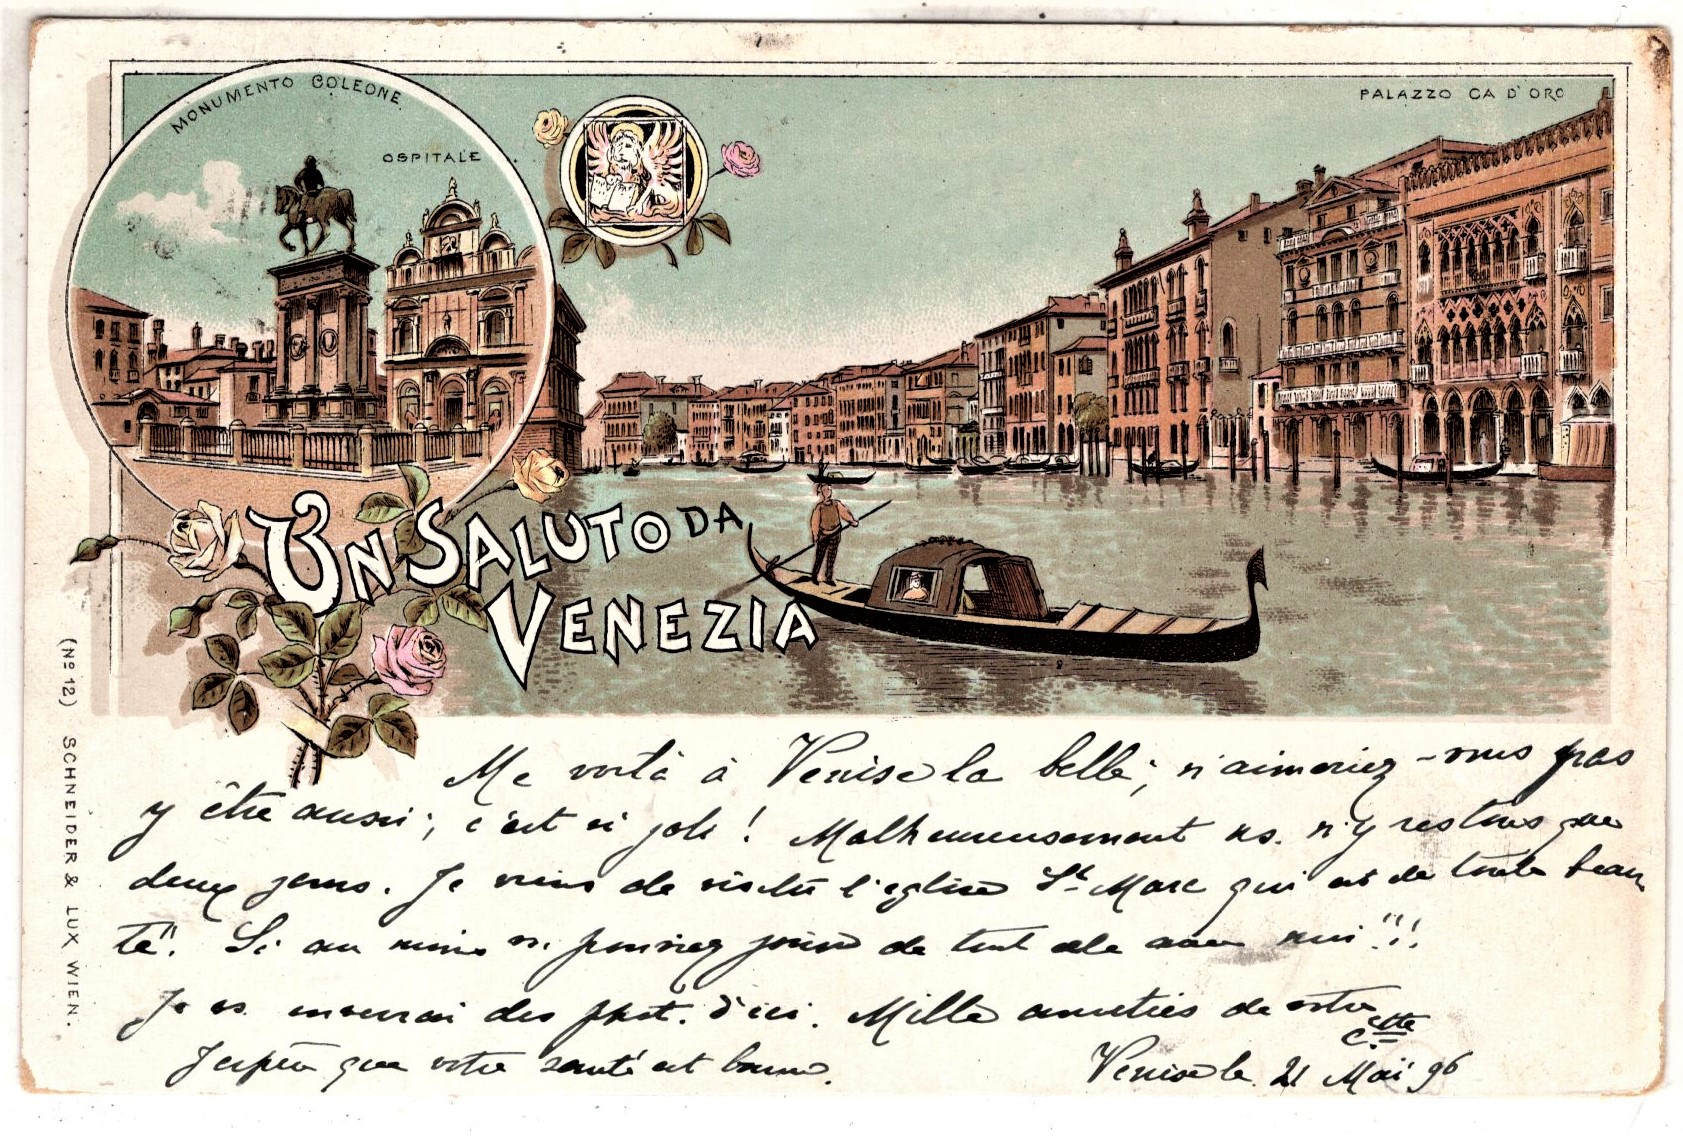 MONUMENTO COLEONE
OSPITALE
PALAZZO CA D'ORO
UN SALUTO DA
VENEZIA
(No 12) SCHNEIDER & LUX WIEN.
Me voilà à Venise la belle; n'aimeriez-vous pas
y être aussi; c'est si joli! Malheureusement ns. n'y restons que
deux jours. Je viens de visiter l'eglise St. Marc qui est de toute beau
té". Si au moins vs. pouviez jouir de tout cela avec moi"!!
Je vs. enverrai des phot. d'ici. Mille amitiés de votre
J'espère que votre santé est bonne.
Venise le 21 Mai 96